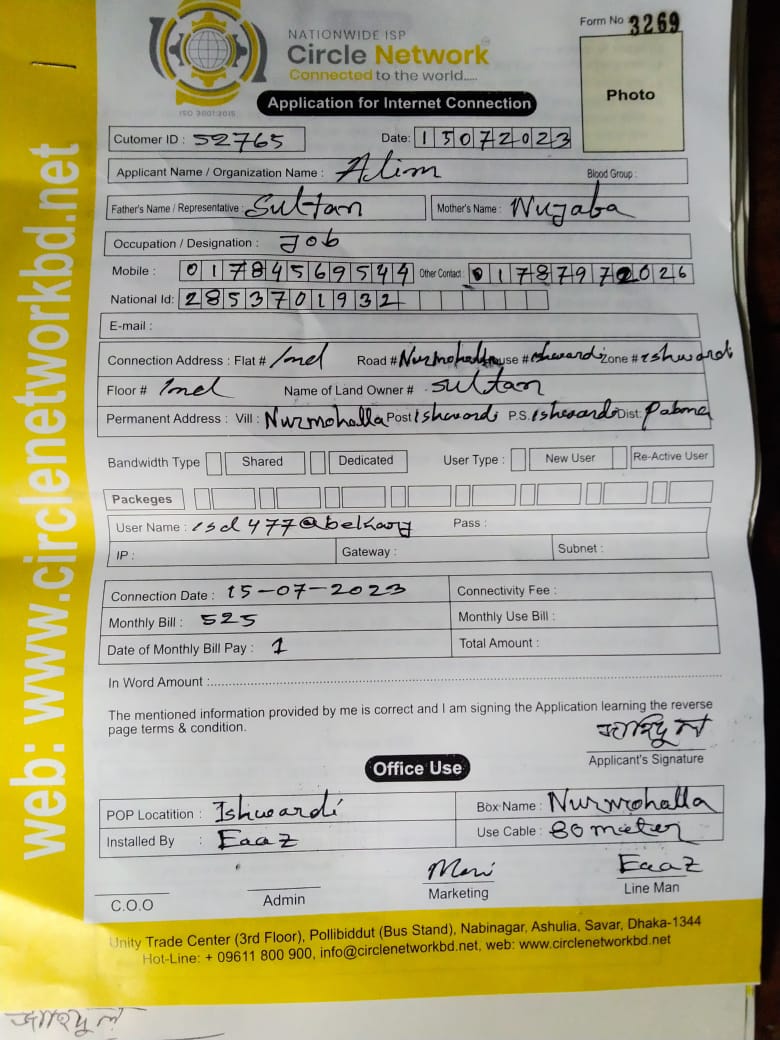 NATIONWIDE ISP
Circle Network
Connected to the world.....
ISO 9001:2015
Form No 3269
Photo
Application for Internet Connection
Cutomer ID : 52765 Date: 15072023
Applicant Name / Organization Name : Alim Blood Group :
Father's Name / Representative : Sultan Mother's Name : Nujaba
Occupation / Designation : Job
Mobile : 01784569544 Other Contact : 01787972026
National Id: 2853701932
E-mail :
Connection Address : Flat # Road # Nurmohalla use # ishwardi Zone # ishwardi
Floor # Name of Land Owner # Sultan
Permanent Address : Vill : Nurmohalla Post Ishwardi P.S. Ishwardi Dist: Pabna
Bandwidth Type Shared Dedicated User Type : New User Re-Active User
Packeges
User Name : Pass :
IP : Gateway : Subnet :
Connection Date : 15-07-2023 Connectivity Fee :
Monthly Bill : 525 Monthly Use Bill :
Date of Monthly Bill Pay : 1 Total Amount :
In Word Amount :
The mentioned information provided by me is correct and I am signing the Application learning the reverse
page terms & condition.
Applicant's Signature
Office Use
POP Locatition : Ishwardi Box Name : Nurmohalla
Installed By : Eaaz Use Cable : 80 meter
Eaaz
C.O.O Admin Marketing Line Man
Unity Trade Center (3rd Floor), Pollibiddut (Bus Stand), Nabinagar, Ashulia, Savar, Dhaka-1344
Hot-Line: + 09611 800 900, info@circlenetworkbd.net, web: www.circlenetworkbd.net
web: www.circlenetworkbd.net